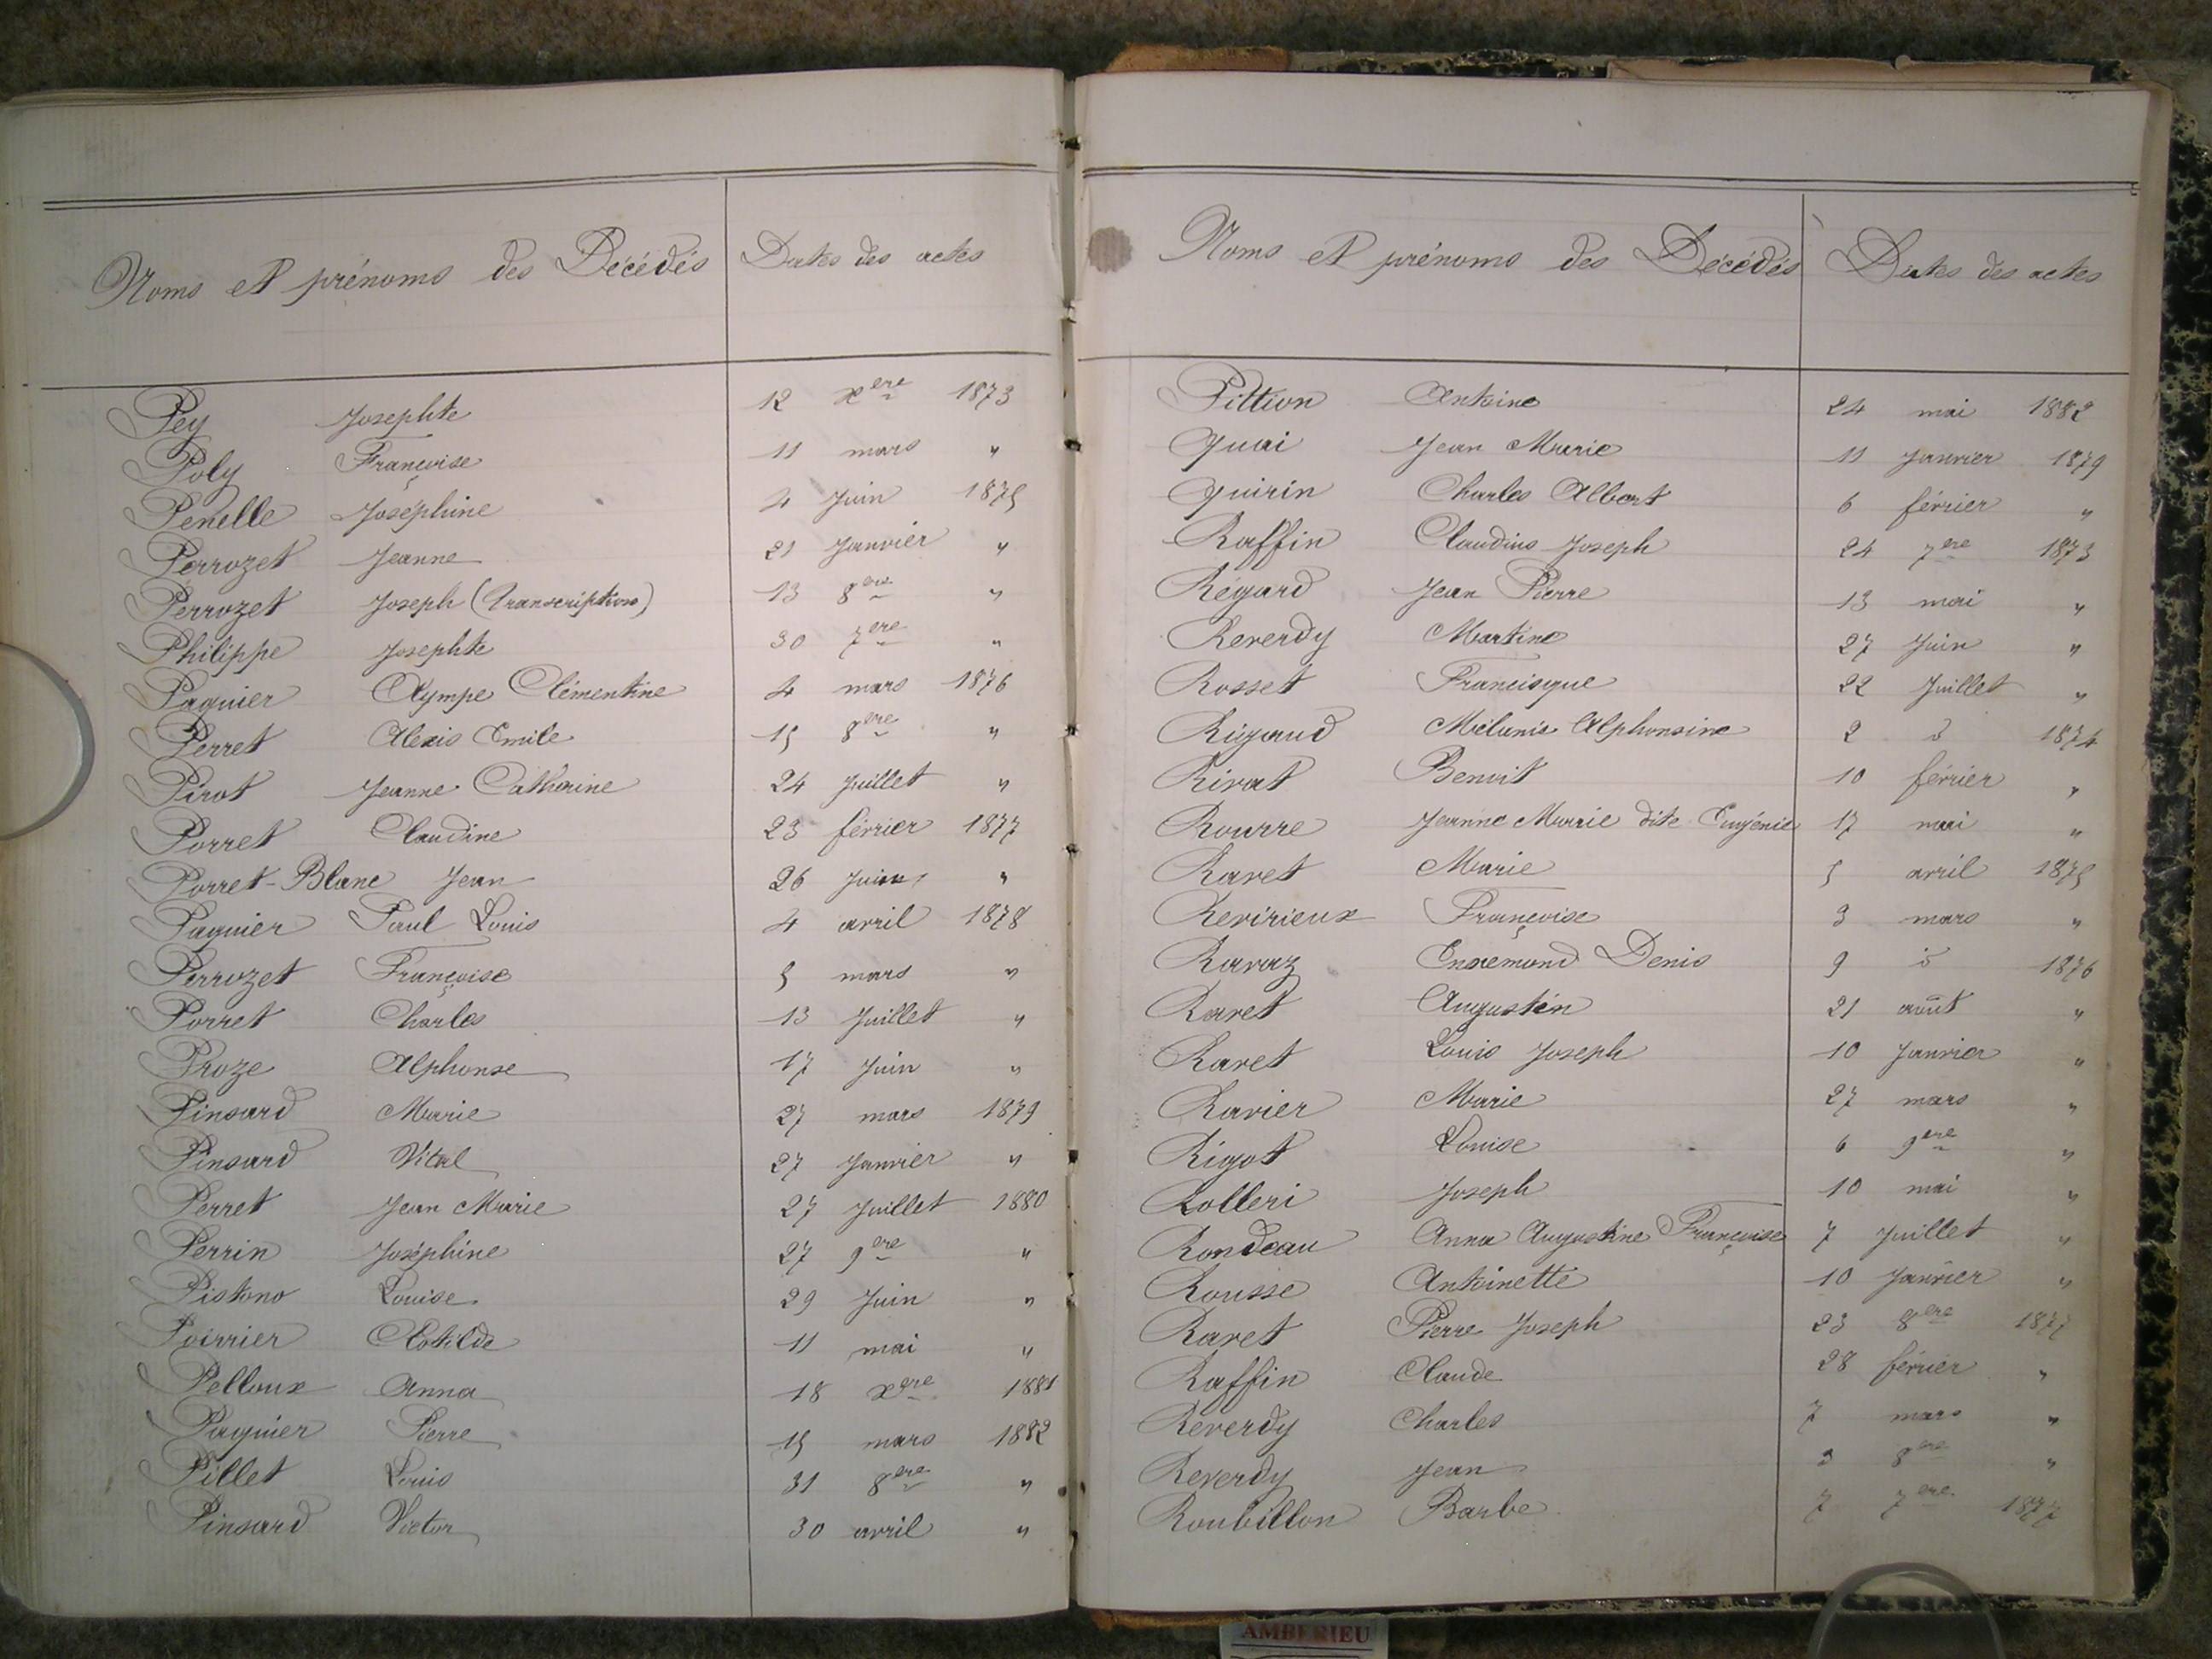 Noms et prénoms des Décédés Dates des actes
Pey Josephte 12 xere 1873
Poly Françoise 11 mars "
Penelle Joséphine 4 Juin 1875
Perrozet Jeanne 21 Janvier "
Perrozet Joseph (Transcription) 13 8ere "
Philippe Josephte 30 7ere "
Paquier Olympe Clémentine 4 mars 1876
Perret Alexis Emile 15 8ere "
Pirot Jeanne Catherine 24 Juillet "
Porret Claudine 23 février 1877
Porret-Blanc Jean 26 Juin "
Paquier Paul Louis 4 avril 1878
Perrozet Françoise 5 mars "
Porret Charles 13 Juillet "
Proze Alphonse 17 Juin "
Pinsard Marie 27 mars 1879
Pinsard Vital 27 Janvier "
Perret Jean Marie 27 Juillet 1880
Perrin Joséphine 27 9ere "
Pistono Louise 29 Juin "
Poirrier Clotilde 11 mai "
Pelloux Anna 18 xere 1881
Paquier Pierre 15 mars 1882
Pillet Louis 31 8ere "
Pinsard Victor 30 avril "
Noms et prénoms des Décédés Dates des actes
Pittion Antoine 24 mai 1882
Quai Jean Marie 11 Janvier 1879
Quirin Charles Albert 6 février "
Raffin Claudius Joseph 24 7ere 1873
Régard Jean Pierre 13 mai "
Reverdy Martine 27 Juin "
Rosset Francisque 22 Juillet "
Rigaud Mélanie Alphonsine 2 d 1874
Rivat Benoit 10 février "
Rourre Jeanne Marie dite Eugénie 17 mai "
Ravet Marie 5 avril 1875
Revirieux Françoise 3 mars "
Ravaz Ennemond Denis 9 d 1876
Ravet Augustin 21 août "
Ravet Louis Joseph 10 Janvier "
Ravier Marie 27 mars "
Rigot Louise 6 9ere "
Rolleri Joseph 10 mai "
Rondeau Anna Augustine Françoise 7 Juillet "
Rousse Antoinette 10 Janvier "
Ravet Pierre Joseph 23 8ere 1877
Raffin Claude 28 février "
Reverdy Charles 7 mars "
Reverdy Jean 3 8ere "
Roubillon Barbe 7 7ere 1877
AMBERIEU